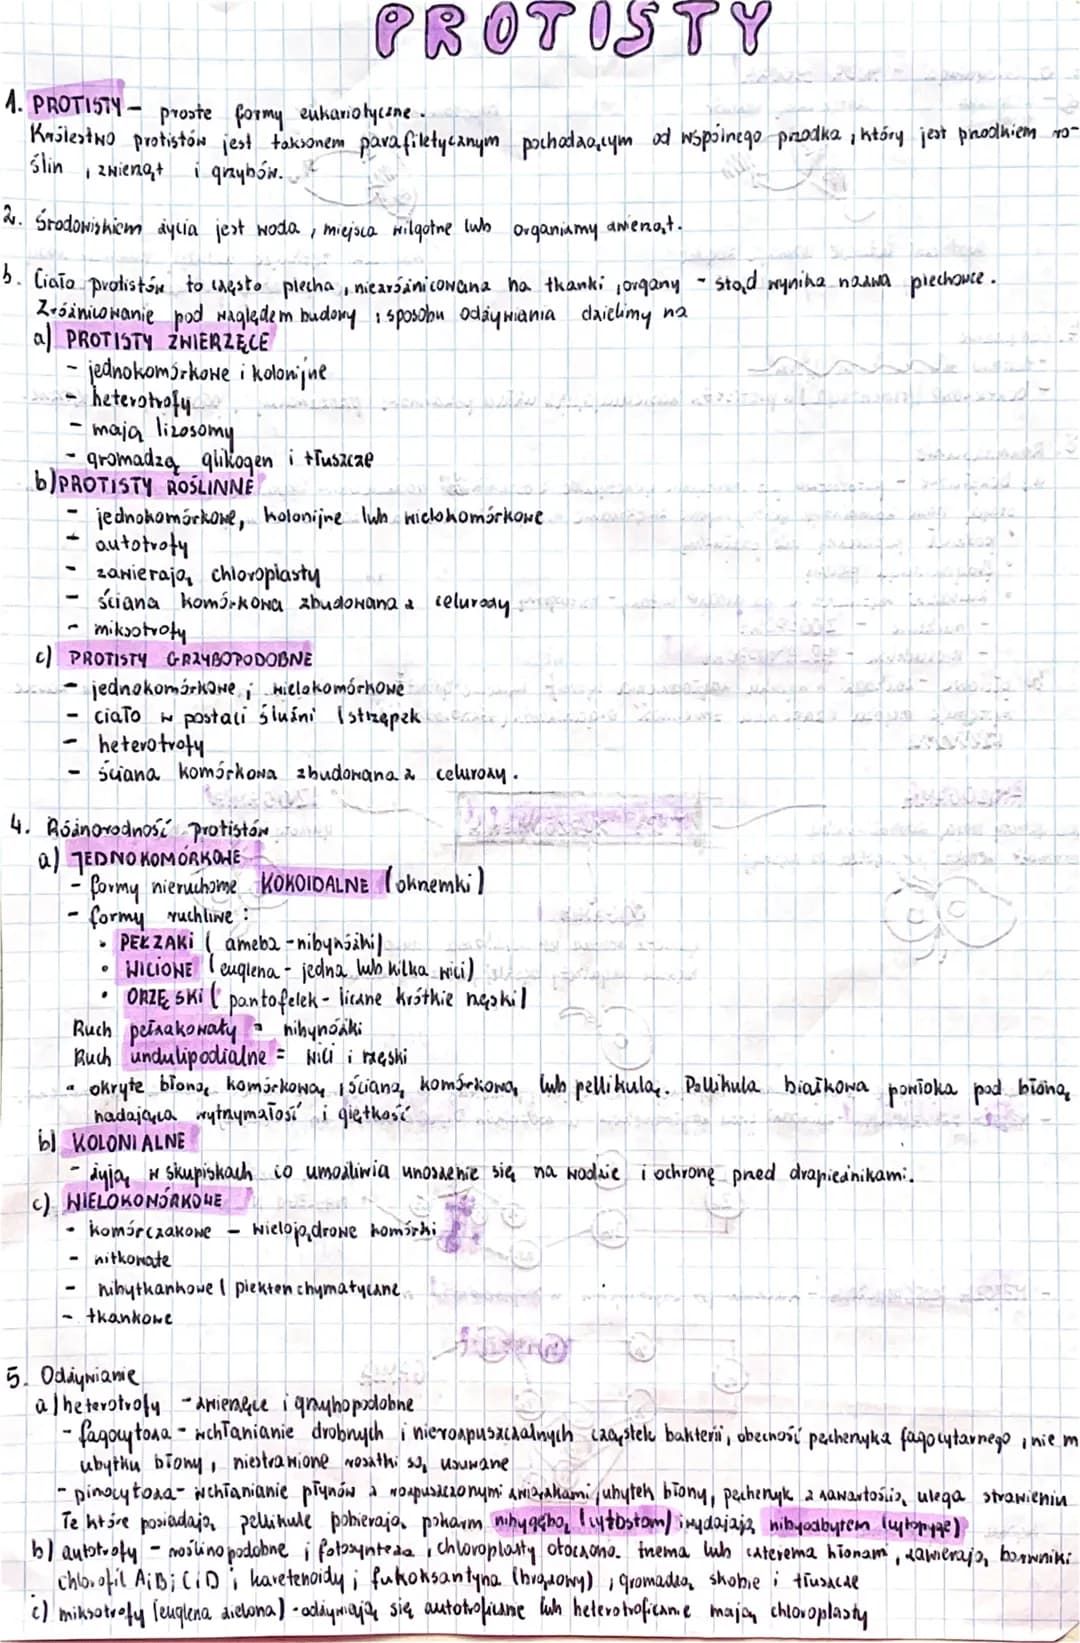 PROTISTY
1. PROTISTY - proste formy eukariotyczne.
Królestwo protistów jest taksonem parafiletycznym pochodzącym od wspólnego przodka, który jest przodkiem ro-
ślin, zwierząt i grzybów.
2. Środowiskiem życia jest woda, miejsca wilgotne lub organizmy zwierząt.
3. Ciało protistów to często plecha, niezróżnicowana na tkanki, organy - stąd wynika nazwa plechowce.
Zróżnicowanie pod względem budowy i sposobu odżywiania dzielimy na
a) PROTISTY ZWIERZĘCE
- jednokomórkowe i kolonijne
- heterotrofy
- mają lizosomy
- gromadzą glikogen i tłuszcze
b) PROTISTY ROŚLINNE
- jednokomórkowe, kolonijne lub wielokomórkowe
- autotrofy
- zawierają chloroplasty
- ściana komórkowa zbudowana z celurozy
- miksotrofy
c) PROTISTY GRZYBOPODOBNE
- jednokomórkowe i wielokomórkowe
- ciało w postaci śluźni / strzępek
- heterotrofy
- ściana komórkowa zbudowana z celurozy.
4. Różnorodność protistów
a) JEDNOKOMÓRKOWE
- formy nieruchome KOKOIDALNE (oknemki)
- formy ruchliwe:
• PEŁZAKI (ameba - nibynóżki)
• WICIONE (euglena - jedna lub kilka wici)
• ORZĘSKI (pantofelek - liczne krótkie rzęski)
Ruch pełzakowaty = nibynóżki
Ruch undulipodialne = wici i rzęski
- okryte błoną komórkową, ścianą komórkową lub pellikulą. Pellikula białkowa powłoka pod błoną,
nadająca wytrzymałość i giętkość
b) KOLONIALNE
- żyją w skupiskach co umożliwia unoszenie się na wodzie i ochronę przed drapieżnikami.
c) WIELOKOMÓRKOWE
- komórczakowe - wielojądrowe komórki
- nitkowate
- nibytkankowe / plektenchymatyczne
- tkankowe
5. Odżywianie
a) heterotrofy - zwierzęce i grzybopodobne
- fagocytoza - wchłanianie drobnych i nierozpuszczalnych cząstek bakterii, obecność pęcherzyka fagocytarnego, nie m
ubytku błony, niestrawione resztki są usuwane
- pinocytoza - wchłanianie płynów z rozpuszczonymi związkami, ubytek błony, pęcherzyk z zawartością ulega strawieniu
Te które posiadają pellikule pobierają pokarm nibygębą (cytostom) i wydajają nibyodbytem (cytopyge)
b) autotrofy - roślinopodobne i fotosynteza, chloroplasty otoczono trzema lub czterema błonami, zawierają barwniki:
chlorofil A i B i C i D i karetenoidy i fukoksantyna (brązowy), gromadzą skobie i tłuszcze
c) miksotrofy (euglena zielona) - odżywiają się autotroficznie lub heterotroficznie mają chloroplasty